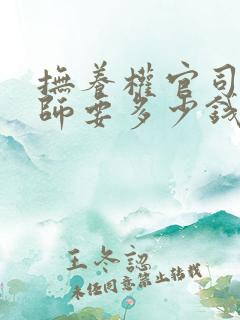 撫養權官司
師要多少錢
王冬認
未经同意禁止转载